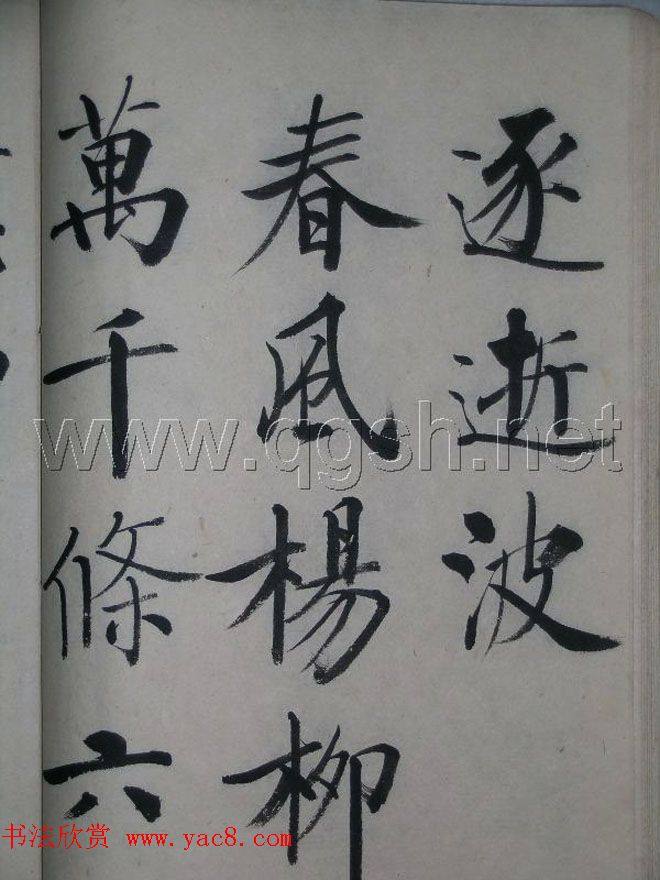 逐逝波
春風楊柳
萬千條六
www.qgsh.net
书法欣赏 www.yac8.com